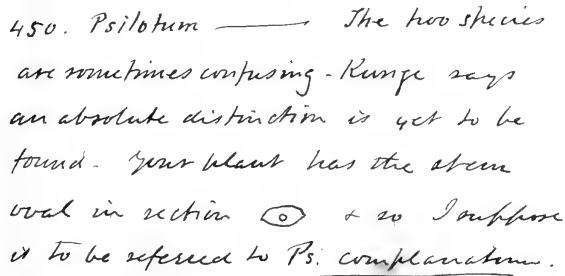 450. Psilotum ——— The two species
are sometimes confusing - Kunze says
an absolute distinction is yet to be
found - Your plant has the stem
oval in section & so I suppose
it to be referred to Ps. complanatum.